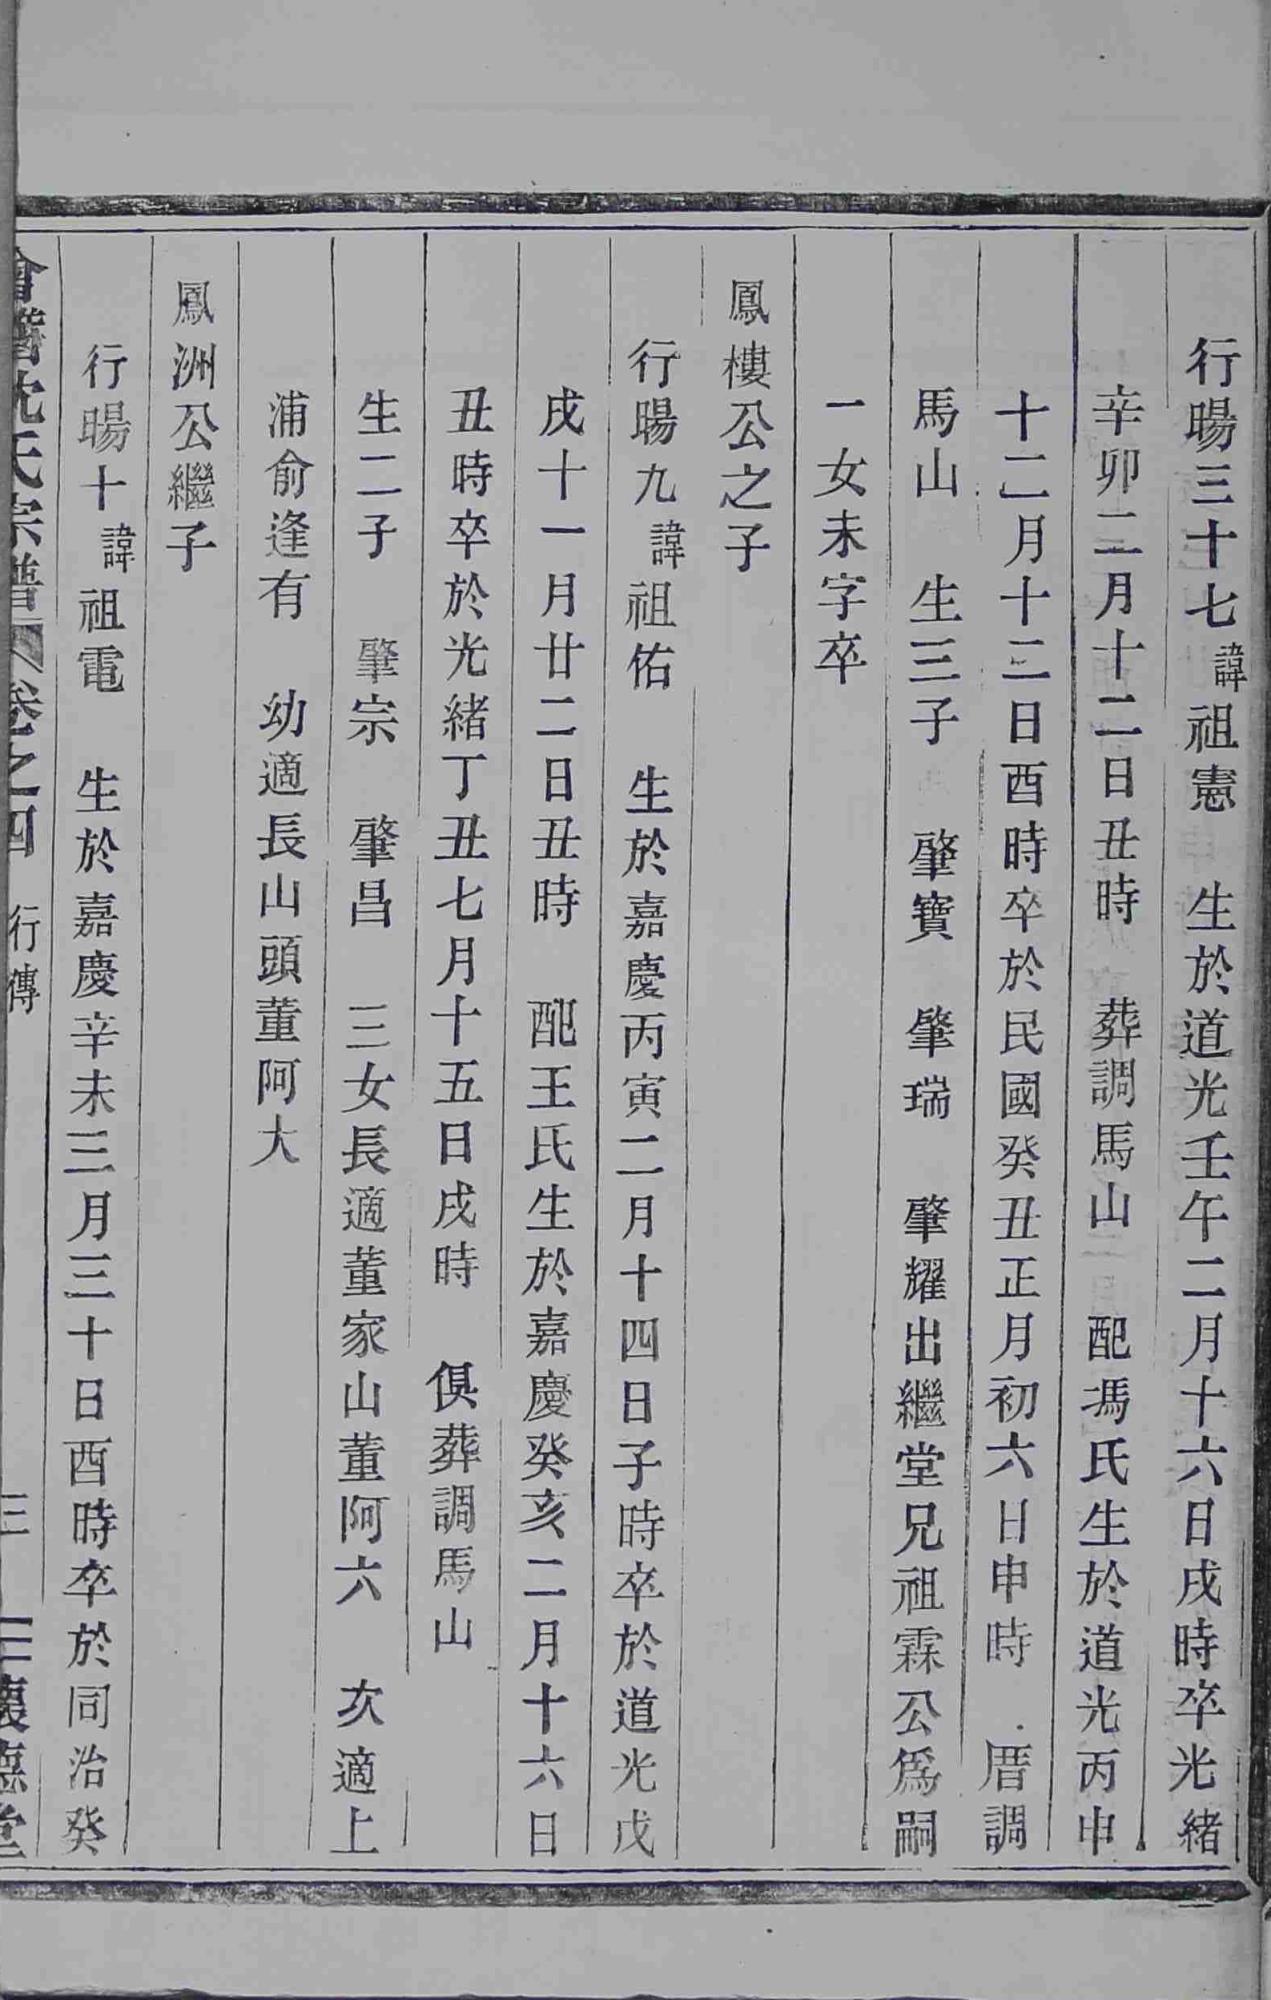 行暘三十七諱祖憲　生於道光壬午二月十六日戌時卒光緒
辛卯二月十二日丑時　葬調馬山　配馮氏生於道光丙申
十二月十二日酉時卒於民國癸丑正月初六日申時　厝調
馬山　生三子　肇寶　肇瑞　肇耀出繼堂兄祖霖公爲嗣
一女未字卒
鳳樓公之子
行暘九諱祖佑　生於嘉慶丙寅二月十四日子時卒於道光戊
戌十一月廿二日丑時　配王氏生於嘉慶癸亥二月十六日
丑時卒於光緒丁丑七月十五日戌時　俱葬調馬山
生二子　肇宗　肇昌　三女長適董家山董阿六　次適上
浦俞逢有　幼適長山頭董阿大
鳳洲公繼子
行暘十諱祖電　生於嘉慶辛未三月三十日酉時卒於同治癸
會稽沈氏宗譜　卷之四　行傳　三　三懷德堂